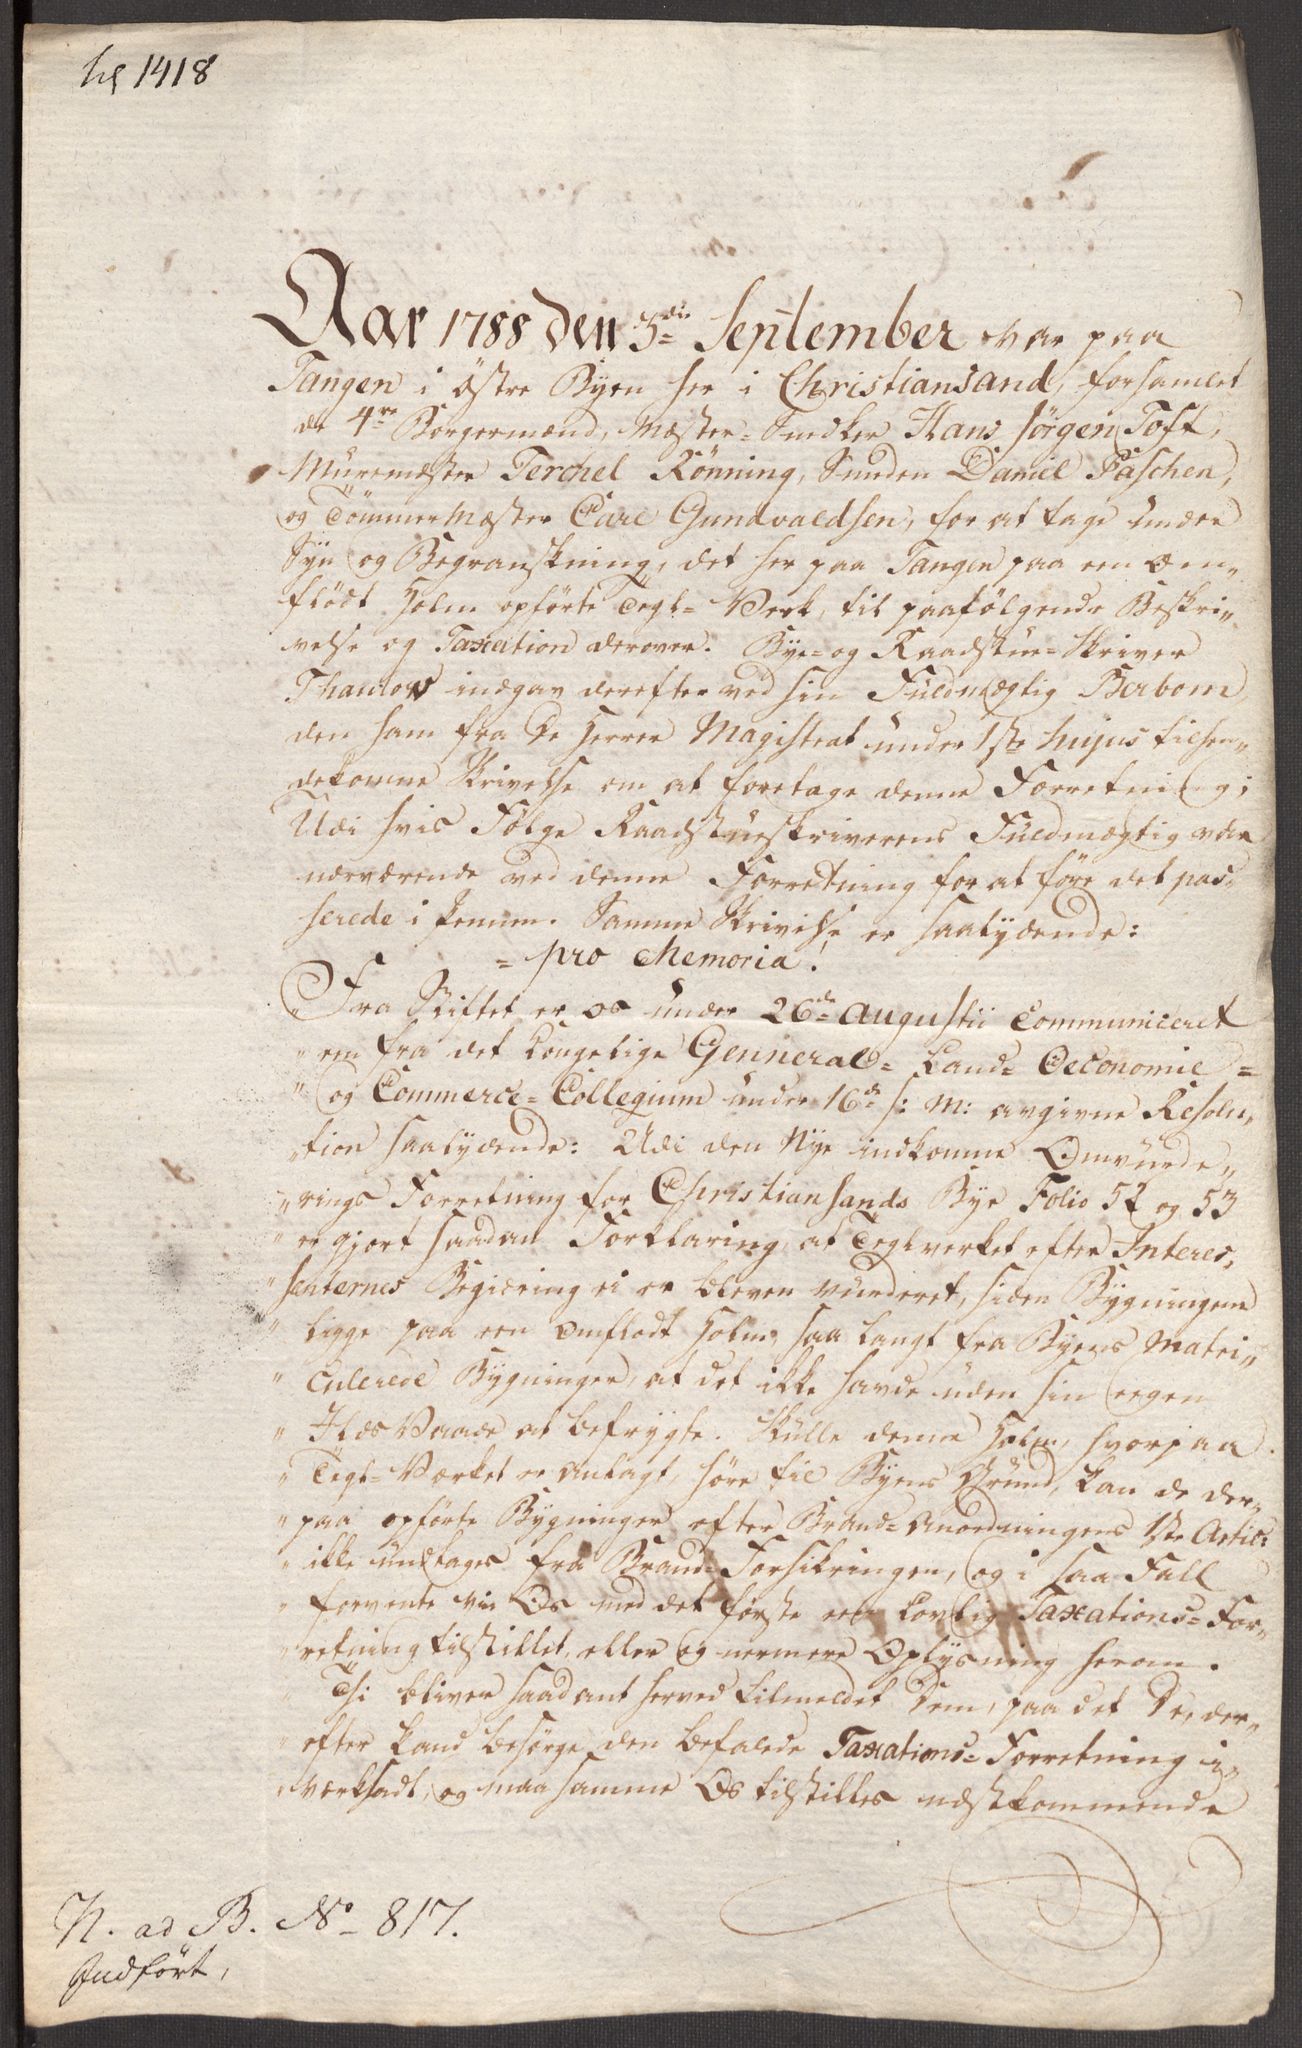 1418
Aar 1788 den 5te September var paa
Tangen i östre Byen her i Christiansand, forsamlet
de 4re Borgermænd, Mæster-Snedker Hans Jörgen Toft,
Muurmæster Terchel Rönning, Smeden Daniel Paschen,
og Tömmermæster Carl Gundvaldsen, for at tage under
Syn og Begranskning, det her paa Tangen paa een om„
flödt Holm opförte Tegl-Verk, til paafölgende Beskri„
velse og Taxation derover. Bye- og Raadstue-Skriver
Thaulow indgav derefter ved sin Fuldmægtig Berbom
den ham fra De Herrer Magistrat under 1ste hujus tilhen„
dekomne Skrivelse om at foretage denne Forretning;
Udi hvis Fölge Raadstueskriverens Fuldmægtig var
nærværende ved denne Forretning for at före det pas„
serede i pennen. Samme Skrivelse er saalydende:
= pro Memoria!
„Fra Stiftet er os under 26de Augustii Communiceret
„een fra det Kongelige Genneral- Land- Oeconomie-
„og Commerce-Collegium under 16de s: M: avgivne Resolu„
„tion saalydende: Udi den Nye indkomne Omvurde„
„rings Forretning for Christiansands Bye Folio 52 og 53
„er gjort saadan Forklaring, at Teglverket efter Interes„
„senternes Begiæring ei er bleven vurderet, siden Bygningerne
„ligge paa een omflödt Holm, saa langt fra Byens Matri„
„culerede Bygninger, at det ikke havde uden sin egen
„Ilds Vaade at befrygte. Skulle denne Holm, hvorpaa
„Tegl-Værket er anlagt, höre til Byens Grund, kan de der„
„paa opförte Bygninger efter Brand-Anordningens 1ste Artic:
„ikke undtages fra Brand-Forsikringen, og i saa Fall
„forvente vii Os med det förste een Lovlig Taxations-For„
„retning tilstillet, eller og nermere Oplysning herom.
„Thi bliver saadant herved tilmeldet Dem, paa det De, der„
„efter kand besörge den befalede Taxations-Forretning i„
„værksadt, og maa samme Os tilstilles næstkommende
N. ad B. No 817.
Indfört,